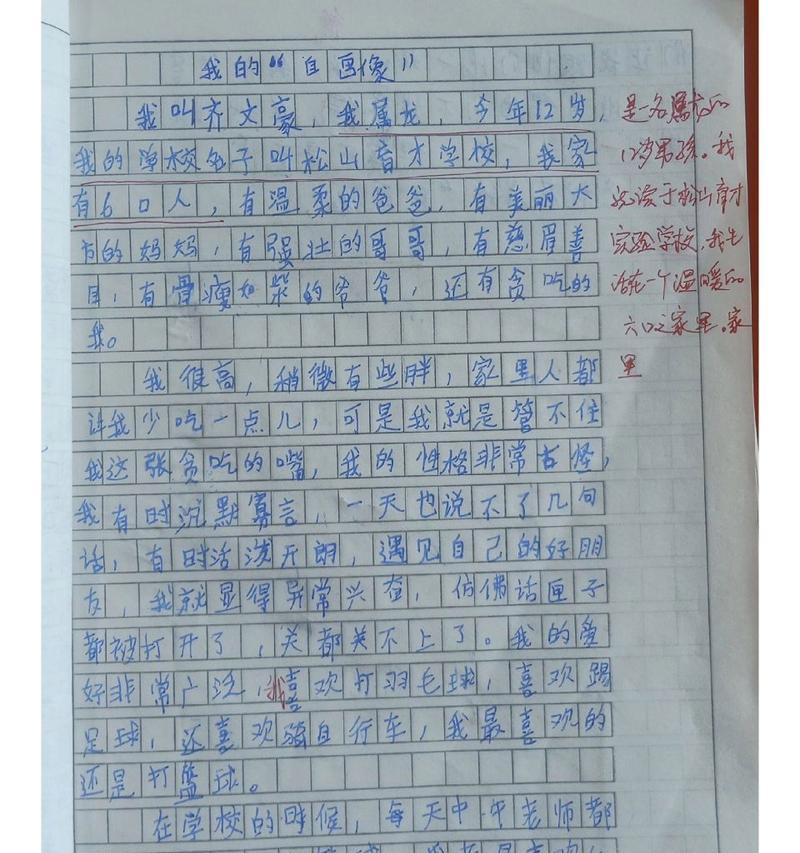 我的“自画像”
我叫齐文豪，我属龙，今年12岁，
我的学校名子叫松山育才学校，我家
有6口人，有温柔的爸爸，有美丽大
方的妈妈，有强壮的哥哥，有慈眉善
目，有骨瘦如柴的爷爷，还有贪吃的
我。
我很高，稍微有些胖，家里人都
讲我少吃一点儿，可是我就是管不住
我这张贪吃的嘴，我的性格非常古怪，
我有时沉默寡言，一天也说不了几句
话，有时活泼开朗，遇见自己的好朋
友，我就显得异常兴奋，仿佛话匣子
都被打开了，关都关不上了。我的爱
好非常广泛，我喜欢打羽毛球，喜欢踢
足球，还喜欢骑自行车，我最喜欢的
还是打篮球。
在学校的时候，每天中午老师都
是一名属龙的
12岁男孩。我
就读于松山育才
实验学校，我生
活在一个温暖的
六口之家里。家
里